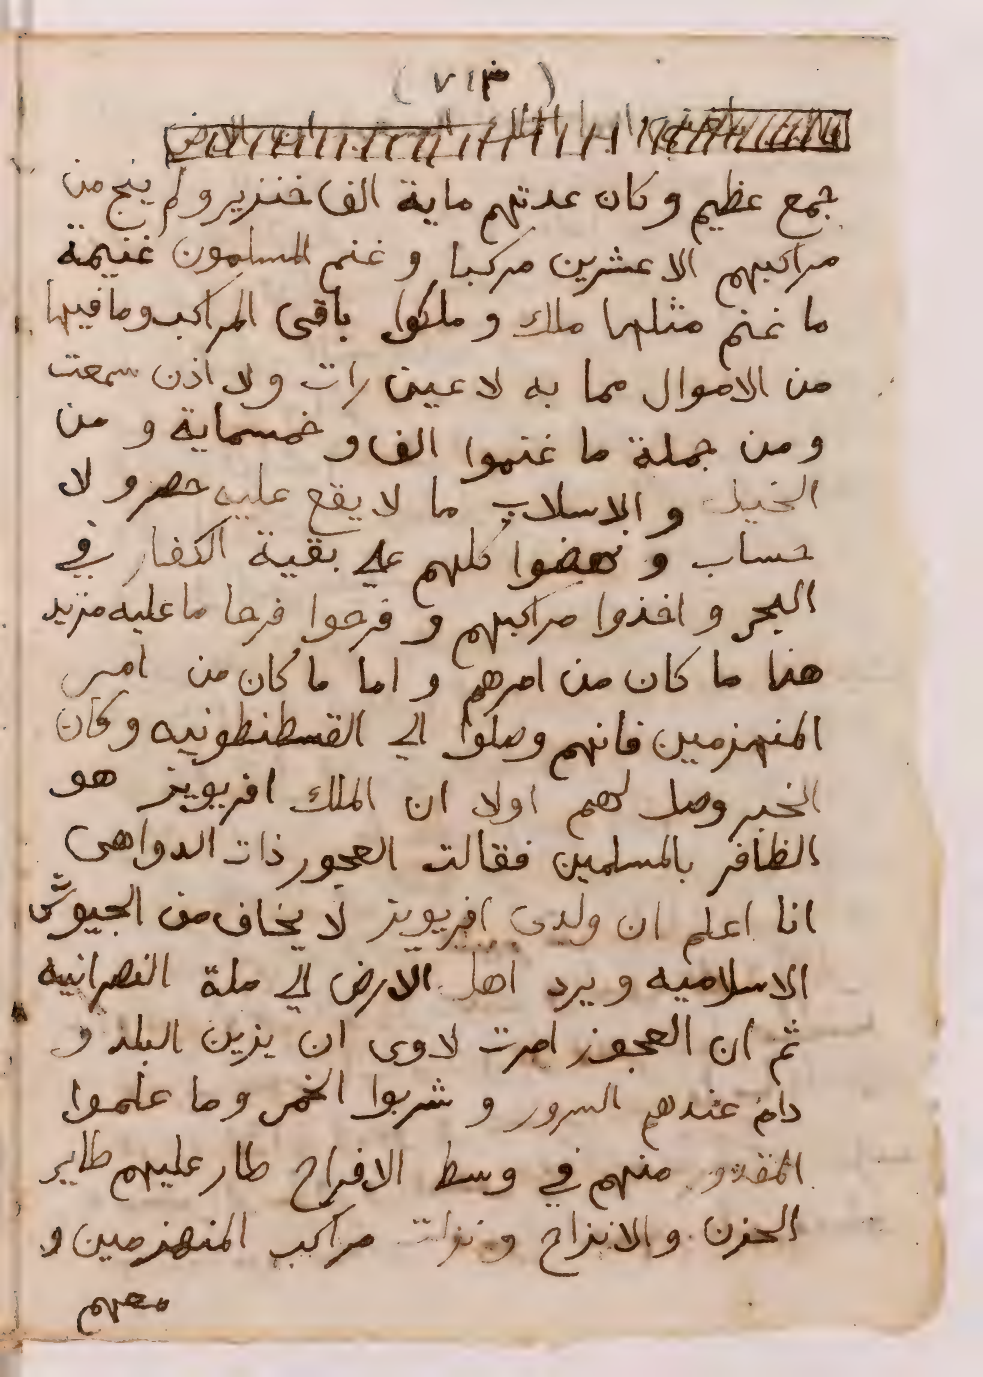 (٧١٣)
جمع عظيم وكان عدتهم ماية الف خنزير ولم ينج من
مراكبهم الا عشرين مركبا و غنم المسلمون غنيمة
ما غنم مثلها ملك و ملكوا باقى المراكب وما فيها
من الاموال مما به لا عين رات ولا اذن سمعت
ومن جملة ما غنموا الف و خمسماية و من
الخيل و الاسلاب ما لا يقع عليه حصر و لا
حساب و نهضوا كلهم على بقية الكفار في
البحر و اخذوا مراكبهم و فرحوا فرحا ما عليه مزيد
هذا ما كان من امرهم و اما ما كان من امر
المنهزمين فانهم وصلوا الى القسطنطونيه وكان
الخبر وصل لهم اولا ان الملك افريويز هو
الظافر بالمسلمين فقالت العجوز ذات الدواهى
انا اعلم ان ولدى افريويز لا يخاف من الجيوش
الاسلاميه ويرد اهل الارض الى ملة النصرانيه
ثم ان العجوز امرت لاوى ان يزين البلد و
دام عندهم السرور و شربوا الخمر وما علموا
منهم في وسط الافراح طار عليهم طاير
الحزن و الانزاح و نزلت مراكب المنهزمين و
معهم